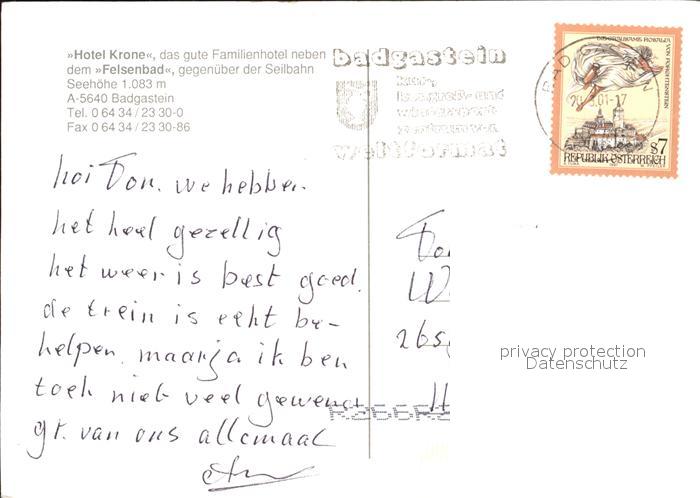 »Hotel Krone«, das gute Familienhotel neben
dem »Felsenbad«, gegenüber der Seilbahn
Seehöhe 1.083 m
A-5640 Badgastein
Tel. 0 64 34 / 23 30-0
Fax 0 64 34 / 23 30-86
badgastein
kur-,
kongreß- und
wintersport-
zentrum von
weltformat
S7
REPUBLIK ÖSTERREICH
hoi Ton. we hebben
het heel gezellig
het weer is best goed.
de trein is echt be-
helpen. maar ja ik ben
toch niet veel gewend
gr. van ons allemaal
privacy protection
Datenschutz